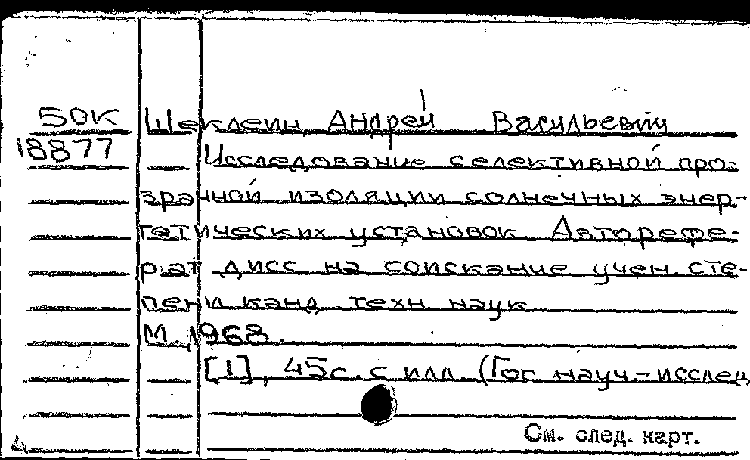 50К Щеклеин, Андрей Васильевич
18877 Исследование селективной про-
зрачной изоляции солнечных энер-
гетических установок Авторефе-
рат дисс на соискание учен. сте-
пени канд. техн наук
М., 1968.
[1], 45с. с илл (Гос науч.-исслед
См. след. карт.